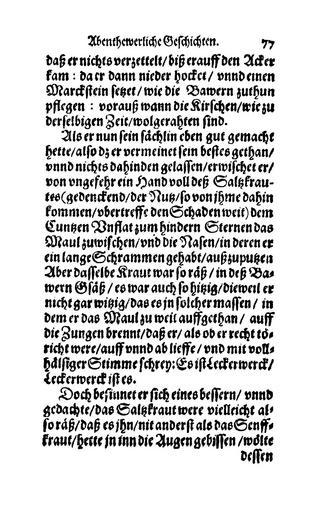 Abenthewerliche Geschichten. 77
daß er nichts verzettelt/ biß erauff den Acker
kam : da er dann nieder hocket/ vnnd einen
Marckstein setzet/ wie die Bawern zuthun
pflegen : vorauß wann die Kirschen/ wie zu
derselbigen Zeit/ wolgerahten sind.
Als er nun sein sächlin eben gut gemacht
hette/ also dz er vermeinet sein bestes gethan/
vnnd nichts dahinden gelassen/ erwischet er/
von vngefehr ein Hand voll deß Saltzkrau-
tes (gedenckend/ der Nutz/ so von jhme dahin
kommen/ vbertreffe den Schaden weit) dem
Cuntzen Vnflat zum hindern Sternen das
Maul zuwischen/ vnd die Nasen/ in deren er
ein lange Schrammen gehabt/ außzuputzen
Aber dasselbe Kraut war so räß/ in deß Ba-
wern Gsäß/ es war auch so hitzig/ dieweil er
nicht gar witzig/ das es jn solcher massen/ in
dem er das Maul zu weit auffgethan/ auff
die Zungen brennt/ daß er/ als ob er recht tö-
richt were/ auff vnnd ab lieffe/ vnd mit voll-
hälsiger Stimme schrey: Es ist Leckerwerck/
Leckerwerck ist es.
Doch besinnet er sich eines bessern/ vnnd
gedachte/ das Saltzkraut were vielleicht al-
so räß/ daß es jhn/ nit anderst als das Senff-
kraut/ hette in inn die Augen gebissen/ wölte
dessen